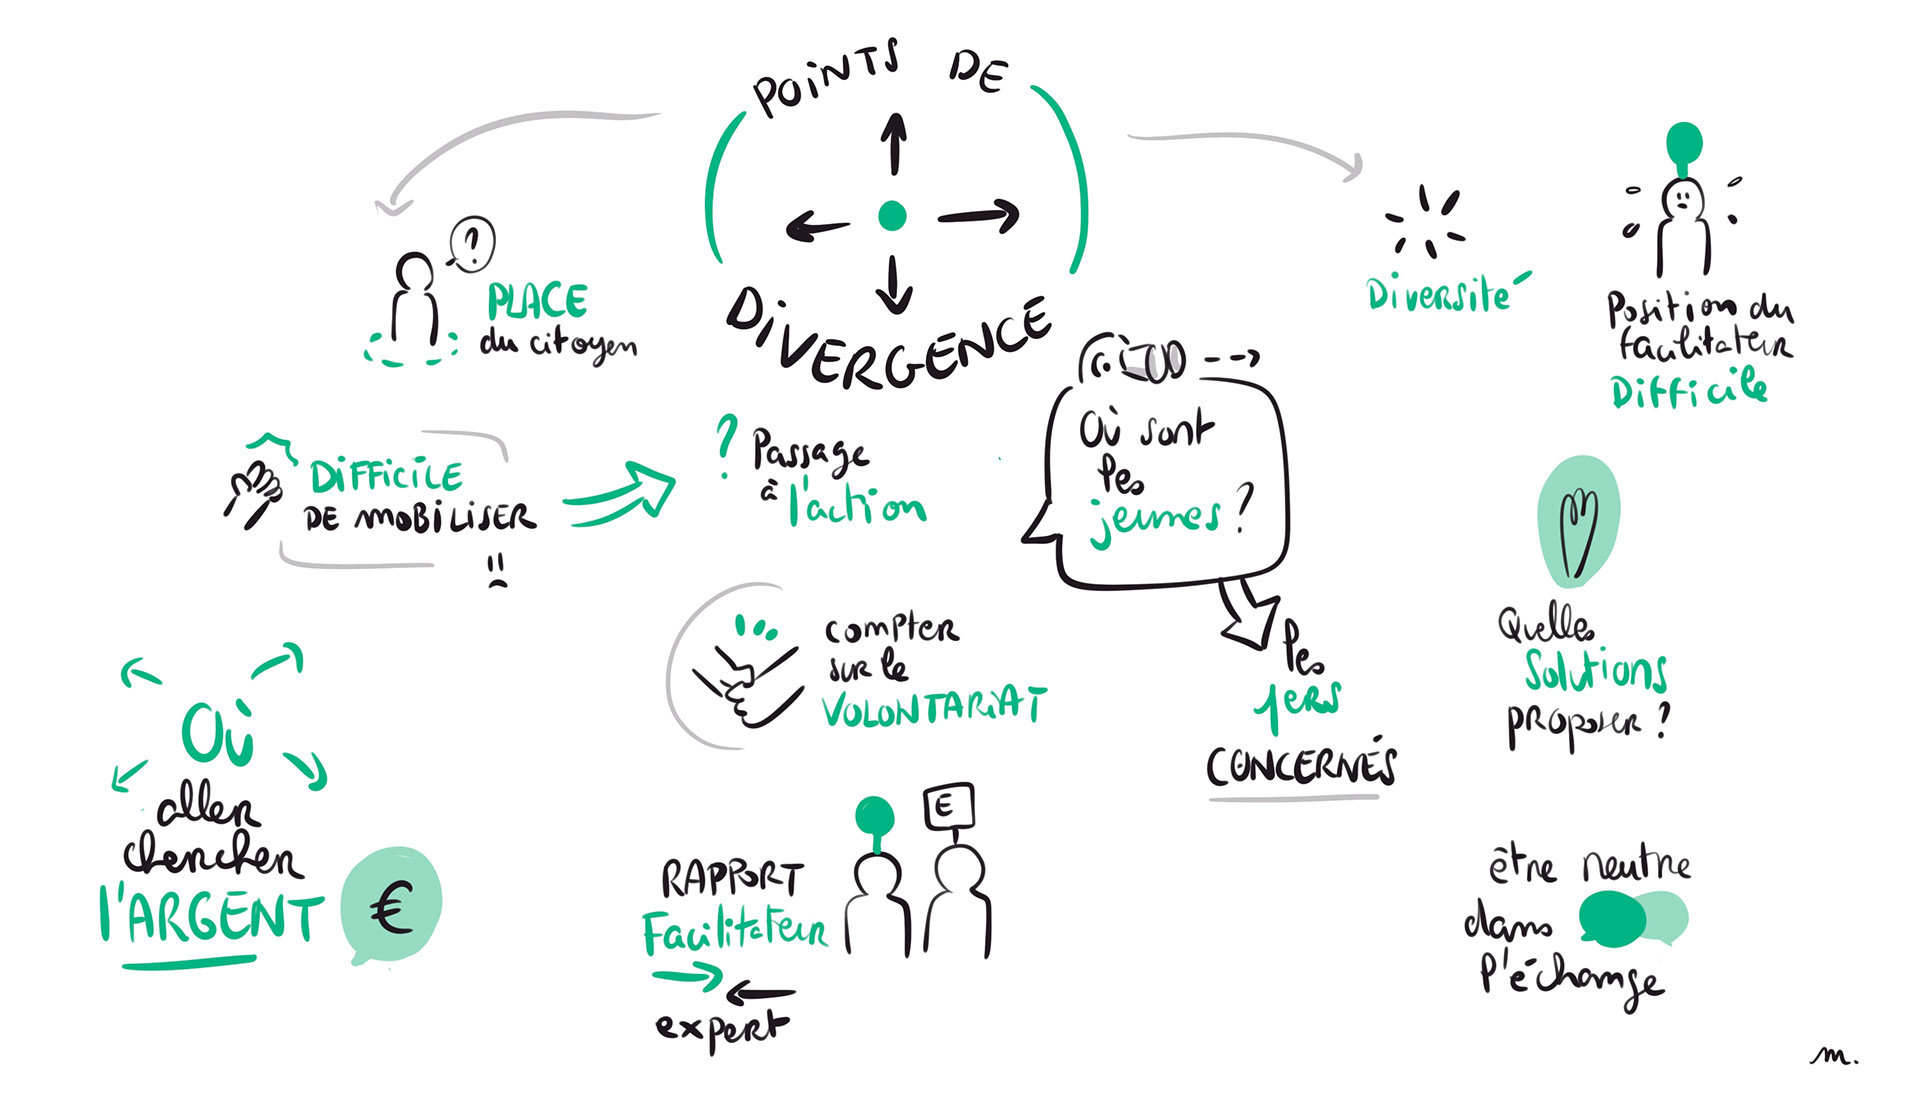 POINTS DE
DIVERGENCE
?
PLACE
du citoyen
Diversité
Position du
facilitateur
Difficile
DIFFICILE
DE MOBILISER
?
Passage
à l'action
Où sont
les
jeunes ?
les
1ers
CONCERNÉS
Quelles
Solutions
proposer ?
compter
sur le
VOLONTARIAT
Où
aller
chercher
l'ARGENT
€
RAPPORT
Facilitateur
expert
E
être neutre
dans
l'échange
m.